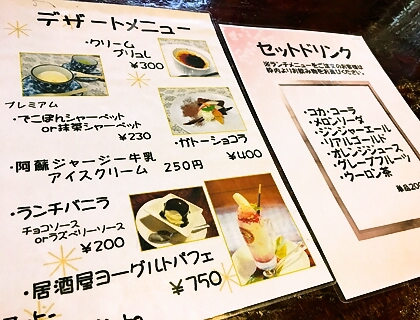 デザートメニュー
・クリーム
ブリュレ
¥300
プレミアム
・でこぽんシャーベット
or抹茶シャーベット
¥230
・ガトーショコラ
¥400
・阿蘇ジャージー牛乳
アイスクリーム 250円
・ランチバニラ
チョコソース
orラズベリーソース
¥200
・居酒屋ヨーグルトパフェ
¥750
セットドリンク
※ランチメニューをご注文のお客様は
枠内よりお飲み物をお選びください。
・コカ・コーラ
・メロンソーダ
・ジンジャーエール
・リアルゴールド
・オレンジジュース
・グレープフルーツ
・ウーロン茶